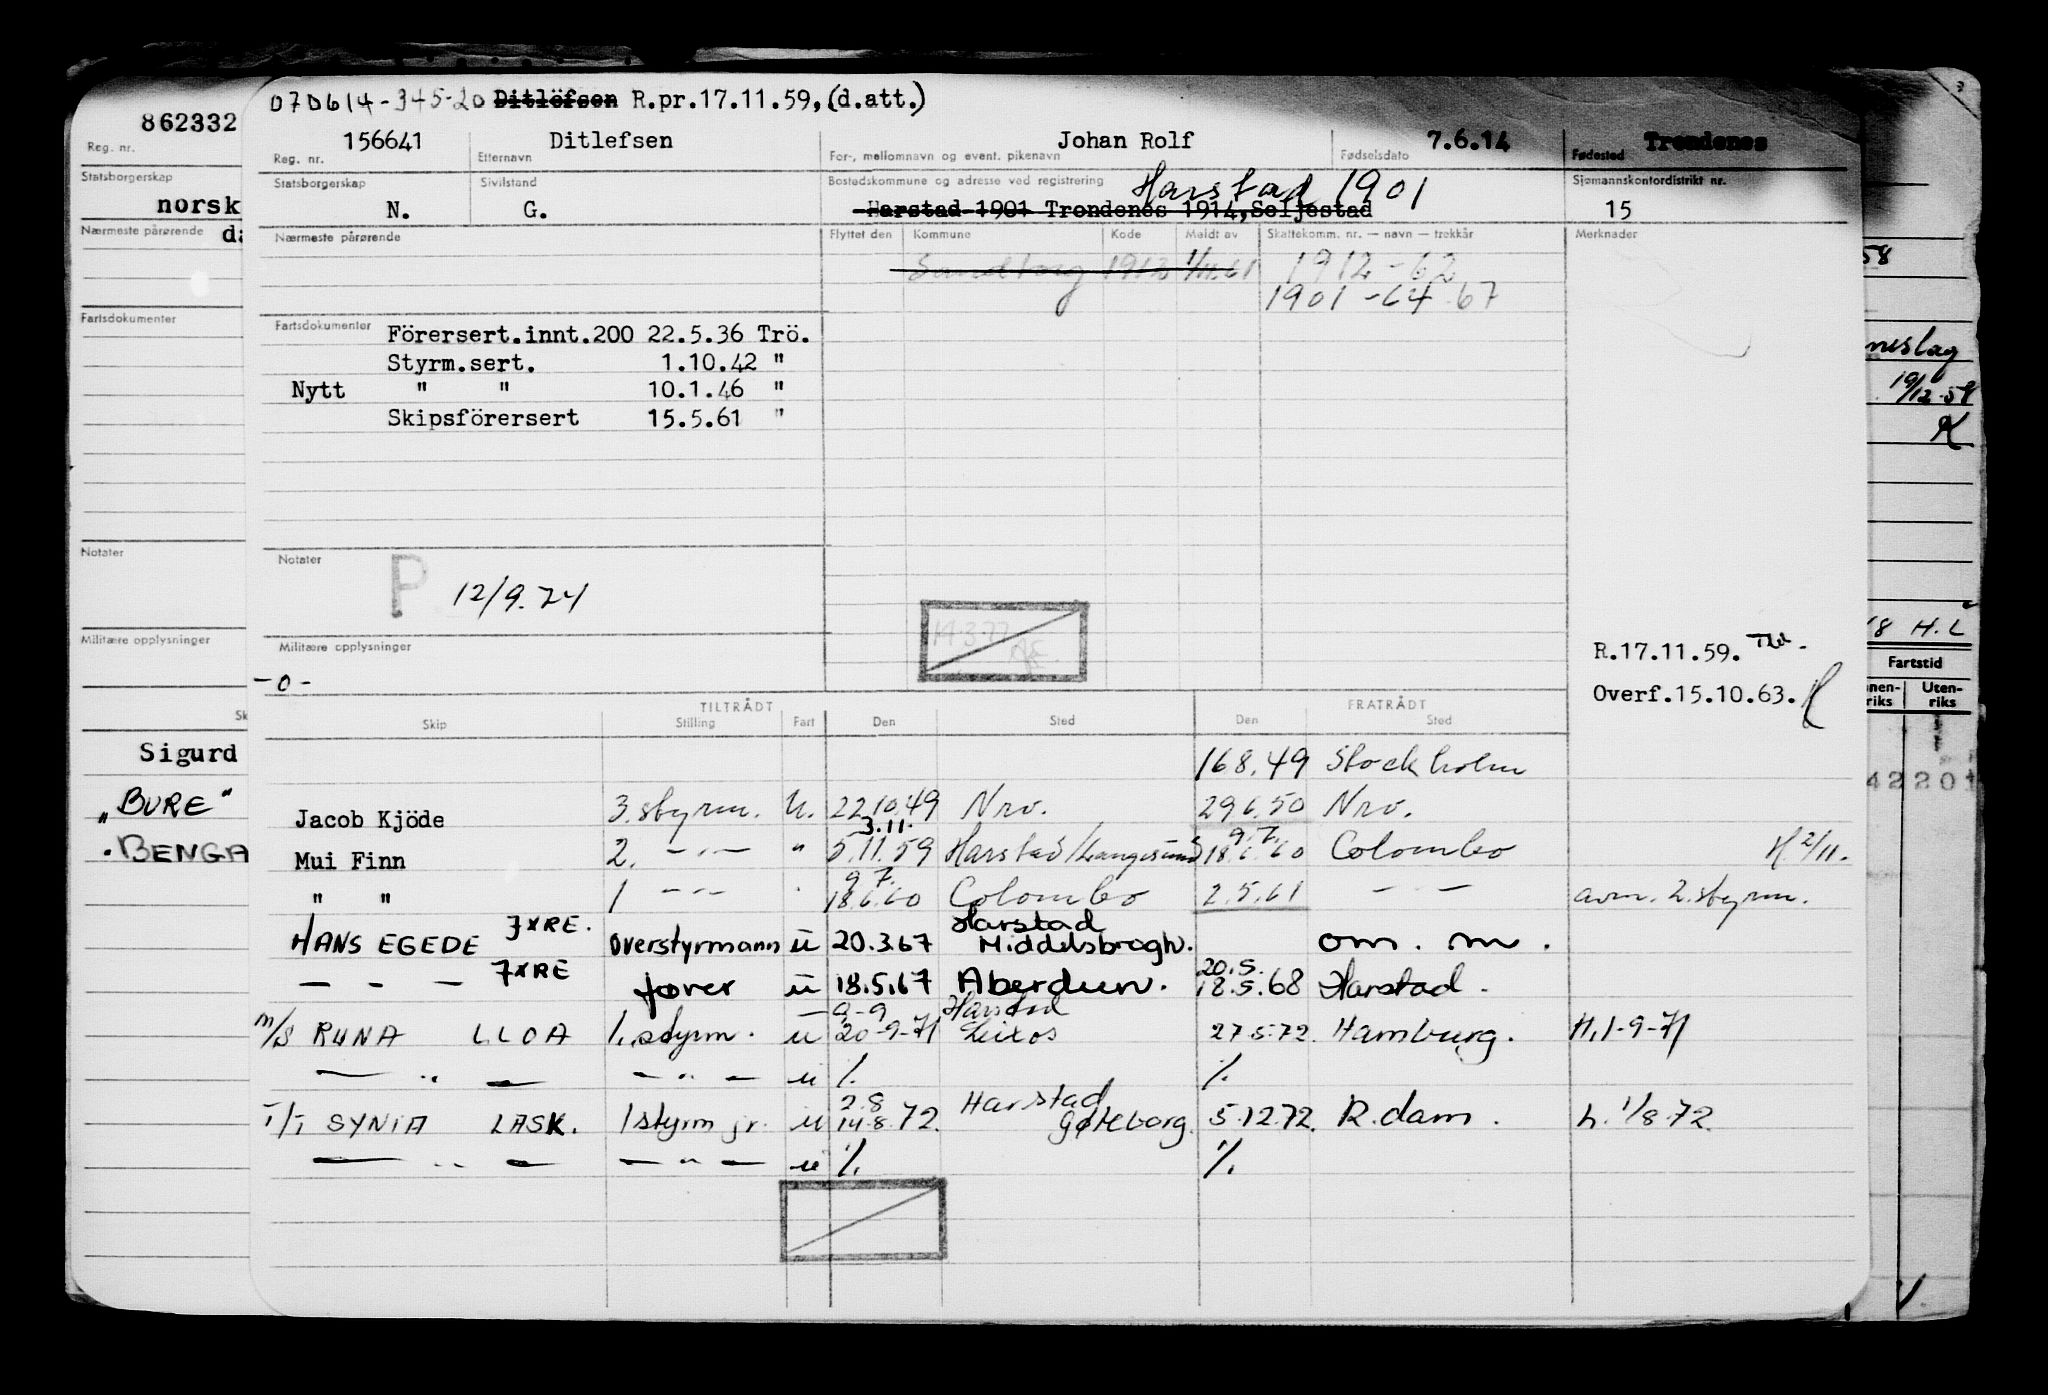 070614-345-20 Ditlöfsen R.pr.17.11.59, (d.att.)
862332
Reg. nr.
Statsborgerskap
norsk
Nærmeste pårørende
Fartsdokumenter
Notater
Militære opplysninger
Sigurd
"BURE"
BENGA
156641 Ditlefsen Johan Rolf 7.6.14 Trondenes
Reg. nr. Etternavn For-, mellomnavn og event. pikenavn Fødselsdato Fødested
Statsborgerskap Sivilstand Bostedskommune og adresse ved registrering Harstad 1901 Sjømannskontordistrikt nr.
N. G. Harstad 1901 Trondenes 1914, Seljestad 15
Nærmeste pårørende Flyttet den Kommune Kode Meldt av Skattekomm. nr. — navn — trekkår Merknader
Sandtorg 1912 1/11.61 1912-62
1901-64-67
Fartsdokumenter Förersert.innt.200 22.5.36 Trö.
Styrm.sert. 1.10.42 "
Nytt " " 10.1.46 "
Skipsförersert 15.5.61 "
Notater
P 12/9.74
14.3.77
Militære opplysninger
-0-
R.17.11.59.
Overf.15.10.63.
TILTRÅDT FRATRÅDT
Skip Stilling Fart Den Sted Den Sted
168.49 Stockholm
Jacob Kjöde 3.styrm. U. 22.10.49 Nrv. 29.6.50 Nrv.
3.11. 9.7.
Mui Finn 2. -"- " 5.11.59 Harstad/Langesund 18.6.60 Colombo H.2/11.
9.7.
" " 1 -"- 18.6.60 Colombo 2.5.61 -"- avm. 2.styrm.
Harstad
HANS EGEDE JXRE. overstyrmann u 20.3.67 Middelsbrogh. om. m.
20.5.
- - - JXRE fører u 18.5.67 Aberdeen. 18.5.68 Harstad.
9-9 Harstad
m/s RUNA LLOA 1.styrm. u 20-9-71 Leixos 27.5.72. Hamburg. H.1-9-71
- " - - " - u %. %.
2.8 Harstad
T/T SYNIA LASK. 1styrm jr. u 14.8.72. Gøteborg. 5.12.72. R.dam. h. 1/8.72.
- " - - " - u %. %.
58
neslag
19/12-58
H.L
Fartstid
Innen-riks Uten-riks
42201